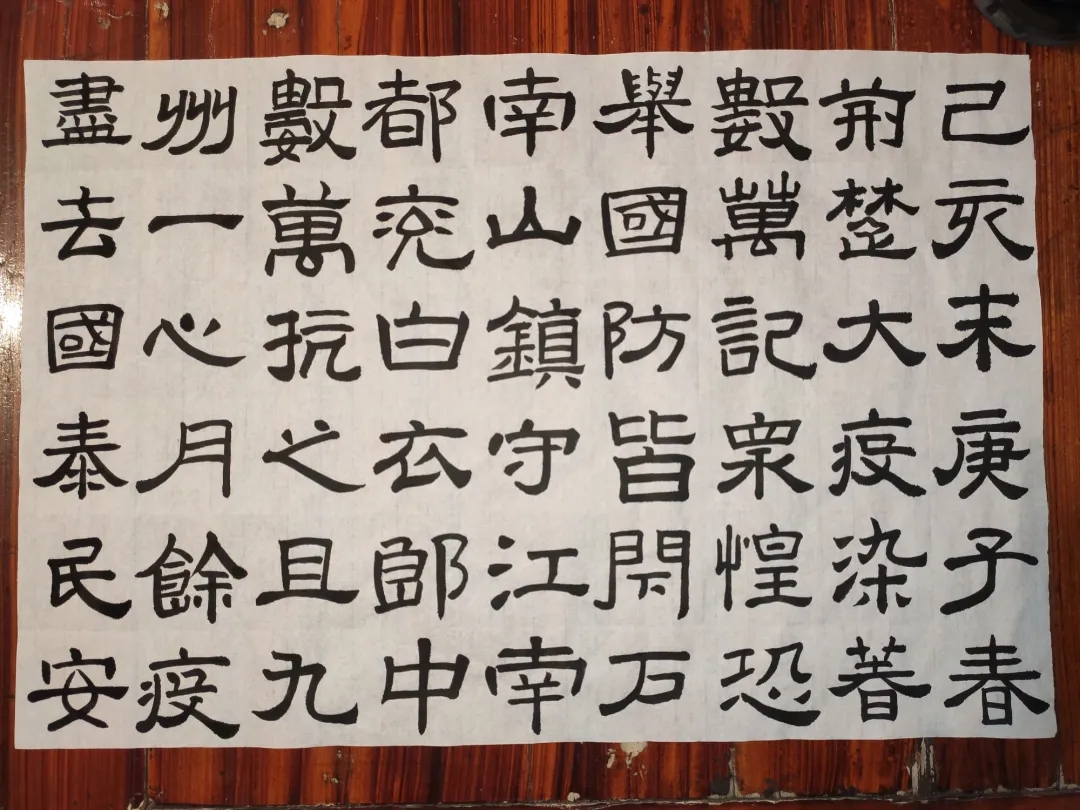 己亥末庚子春
荊楚大疫染著
數萬記眾惶恐
舉國防皆閇石
南山鎮守江南
都白衣郎中
數萬抗之且九
州一心月餘疫
盡去國泰民安